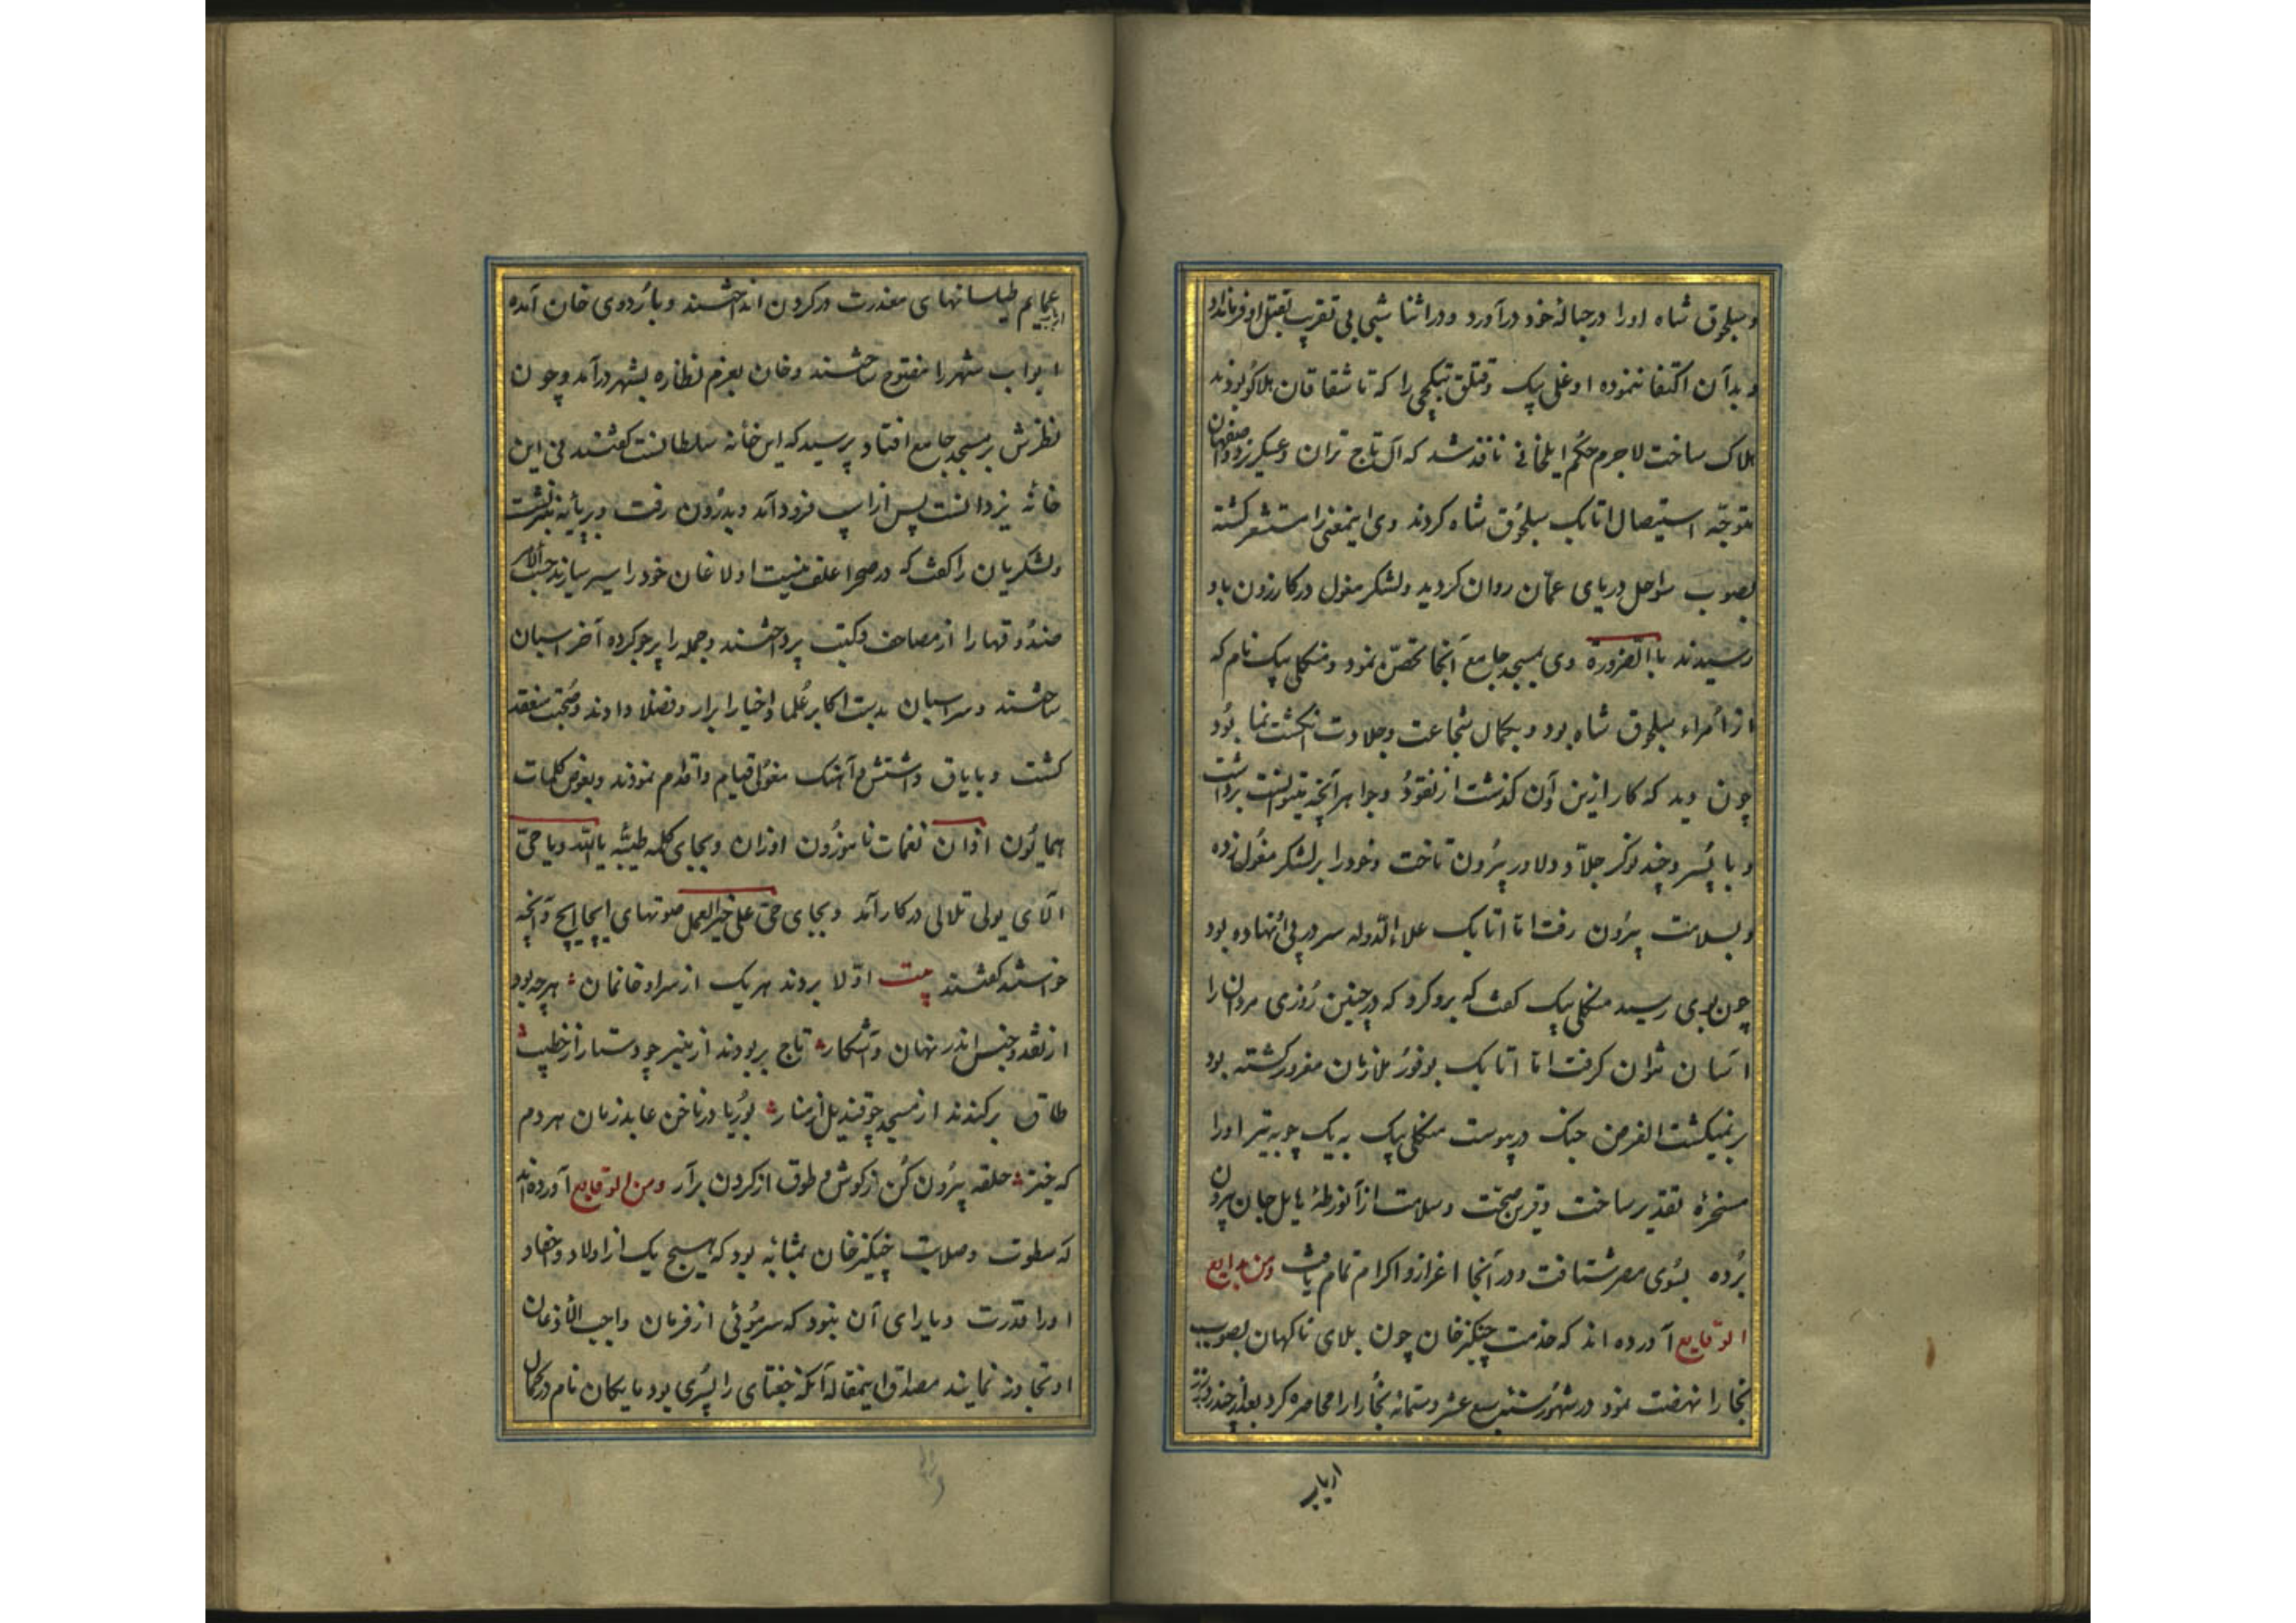 و سلجوق شاه اورا در حباله خود درآورد و در اثنا شبی بی تقریب بقتل او فرمانداد
و بدان اکتفا ننموده اوغلی بیک و قتلق بتکچی را که تاشقاقان هلاکو بودند
هلاک ساخت لاجرم حکم ایلخانی نافذ شد که التاج تران و عسکر یزد و اصفهان
متوجّه استیصال اتابک سلجوق شاه کردند وی اینمعنی را مستشعر کشته
بصوب سواحل دریای عمّان روان کردید و لشکر مغول در کازرون باو
رسیدند باالضرورة وی بمسجد جامع آنجا تحصّن نمود و منکلی بیک نام که
از اُمراء سلجوق شاه بود و بکمال شجاعت و جلادت انکشت نما بود
چون دید که کار ازین و آن کذشت از نقود و جواهر آنچه میتوانست برداشت
و با پسر و چند نوکر جلاّد و دلاور بیرون تاخت و خود را بر لشکر مغول زده
و بسلامت بیرون رفت امّا اتابک علاءالدّوله سر در پی اُو نهاده بود
چون بوی رسید منکلی بیک کفت که برو کرد که در چنین رُوزی مردان را
آسان نتوان کرفت امّا اتابک بوفور ملازمان مغرور کشته بود
برنمیکشت الغرض جنک در پیوست منکلی بیک به یک چوبه تیر اورا
مسخره تقدیر ساخت و قرین صحّت و سلامت از آنورطهٔ هایل جان بیرون
بُرده بسُوی مصر شتافت و در آنجا اعزاز و اکرام تمام یافت ومن بدایع
الوقایع آورده اند که خدمت چنکیز خان چون بلای ناکهان بصوب
بخارا نهضت نمود در شهور سنه سبع عشر و ستمائه بخارا را محاصره کرد بعد از چند روز
ارباب
عمایم طیلسانهای معذرت در کردن انداختند و باُردوی خان آمده
ابواب شهر را مفتوح ساختند و خان بعزم نظاره بشهر درآمد و چون
نظرش بر مسجد جامع افتاد پرسید که این خانهٔ سلطانست کفتند نی این
خانهٔ یزدانست پس از اسپ فرود آمد و بدرون رفت و بر پایه منبر نشست
و لشکریان را کفت که در صحرا علف نیست اولاغان خود را سیر سازند حسب الامر
صندوقها را از مصاحف و کتب پرداختند و جمله را پر جو کرده آخر اسپان
ساختند و سر اسپان بدست اکابر عُلما و اخیار ابرار و فضلا دادند و صُحبت منعقد
کشت و بایاق و اشتش و آهنک مغولی قیام و اقدام نمودند و بعوض کلمات
همایُون اذان نغمات ناموزون اوزان و بجای کلمه طیّبه یاالله و یا حیّ
الّای یولی تلالی در کار آمد و بجای حیّ علی خیر العمل صوتهای ایجا ایج و آنچه
خواستند کفتند بیت اوّلا بردند هر یک از سرا و خانمان هرچه بود
از نقد و جنس اندر نهان و آشکار تاج بربودند از منبر چو دستار از خطیب
طاق برکندند از مسجد چو قندیل از منار بُوریا در ناخن عابد زمان هردم
که خیز حلقه بیرون کُن ز کوش و طوق از کردن برآر ومن الوقایع آورده اند
که سطوت و صلابت چنکیز خان بمثابه بود که هیچ یک از اولاد و احفاد
اورا قدرت و یارای آن نبود که سر مُوئی از فرمان واجب الاذعان
او تجاوز نمایند مصداق اینمقال آنکه جغتای را پسری بود مایکان نام در کمال